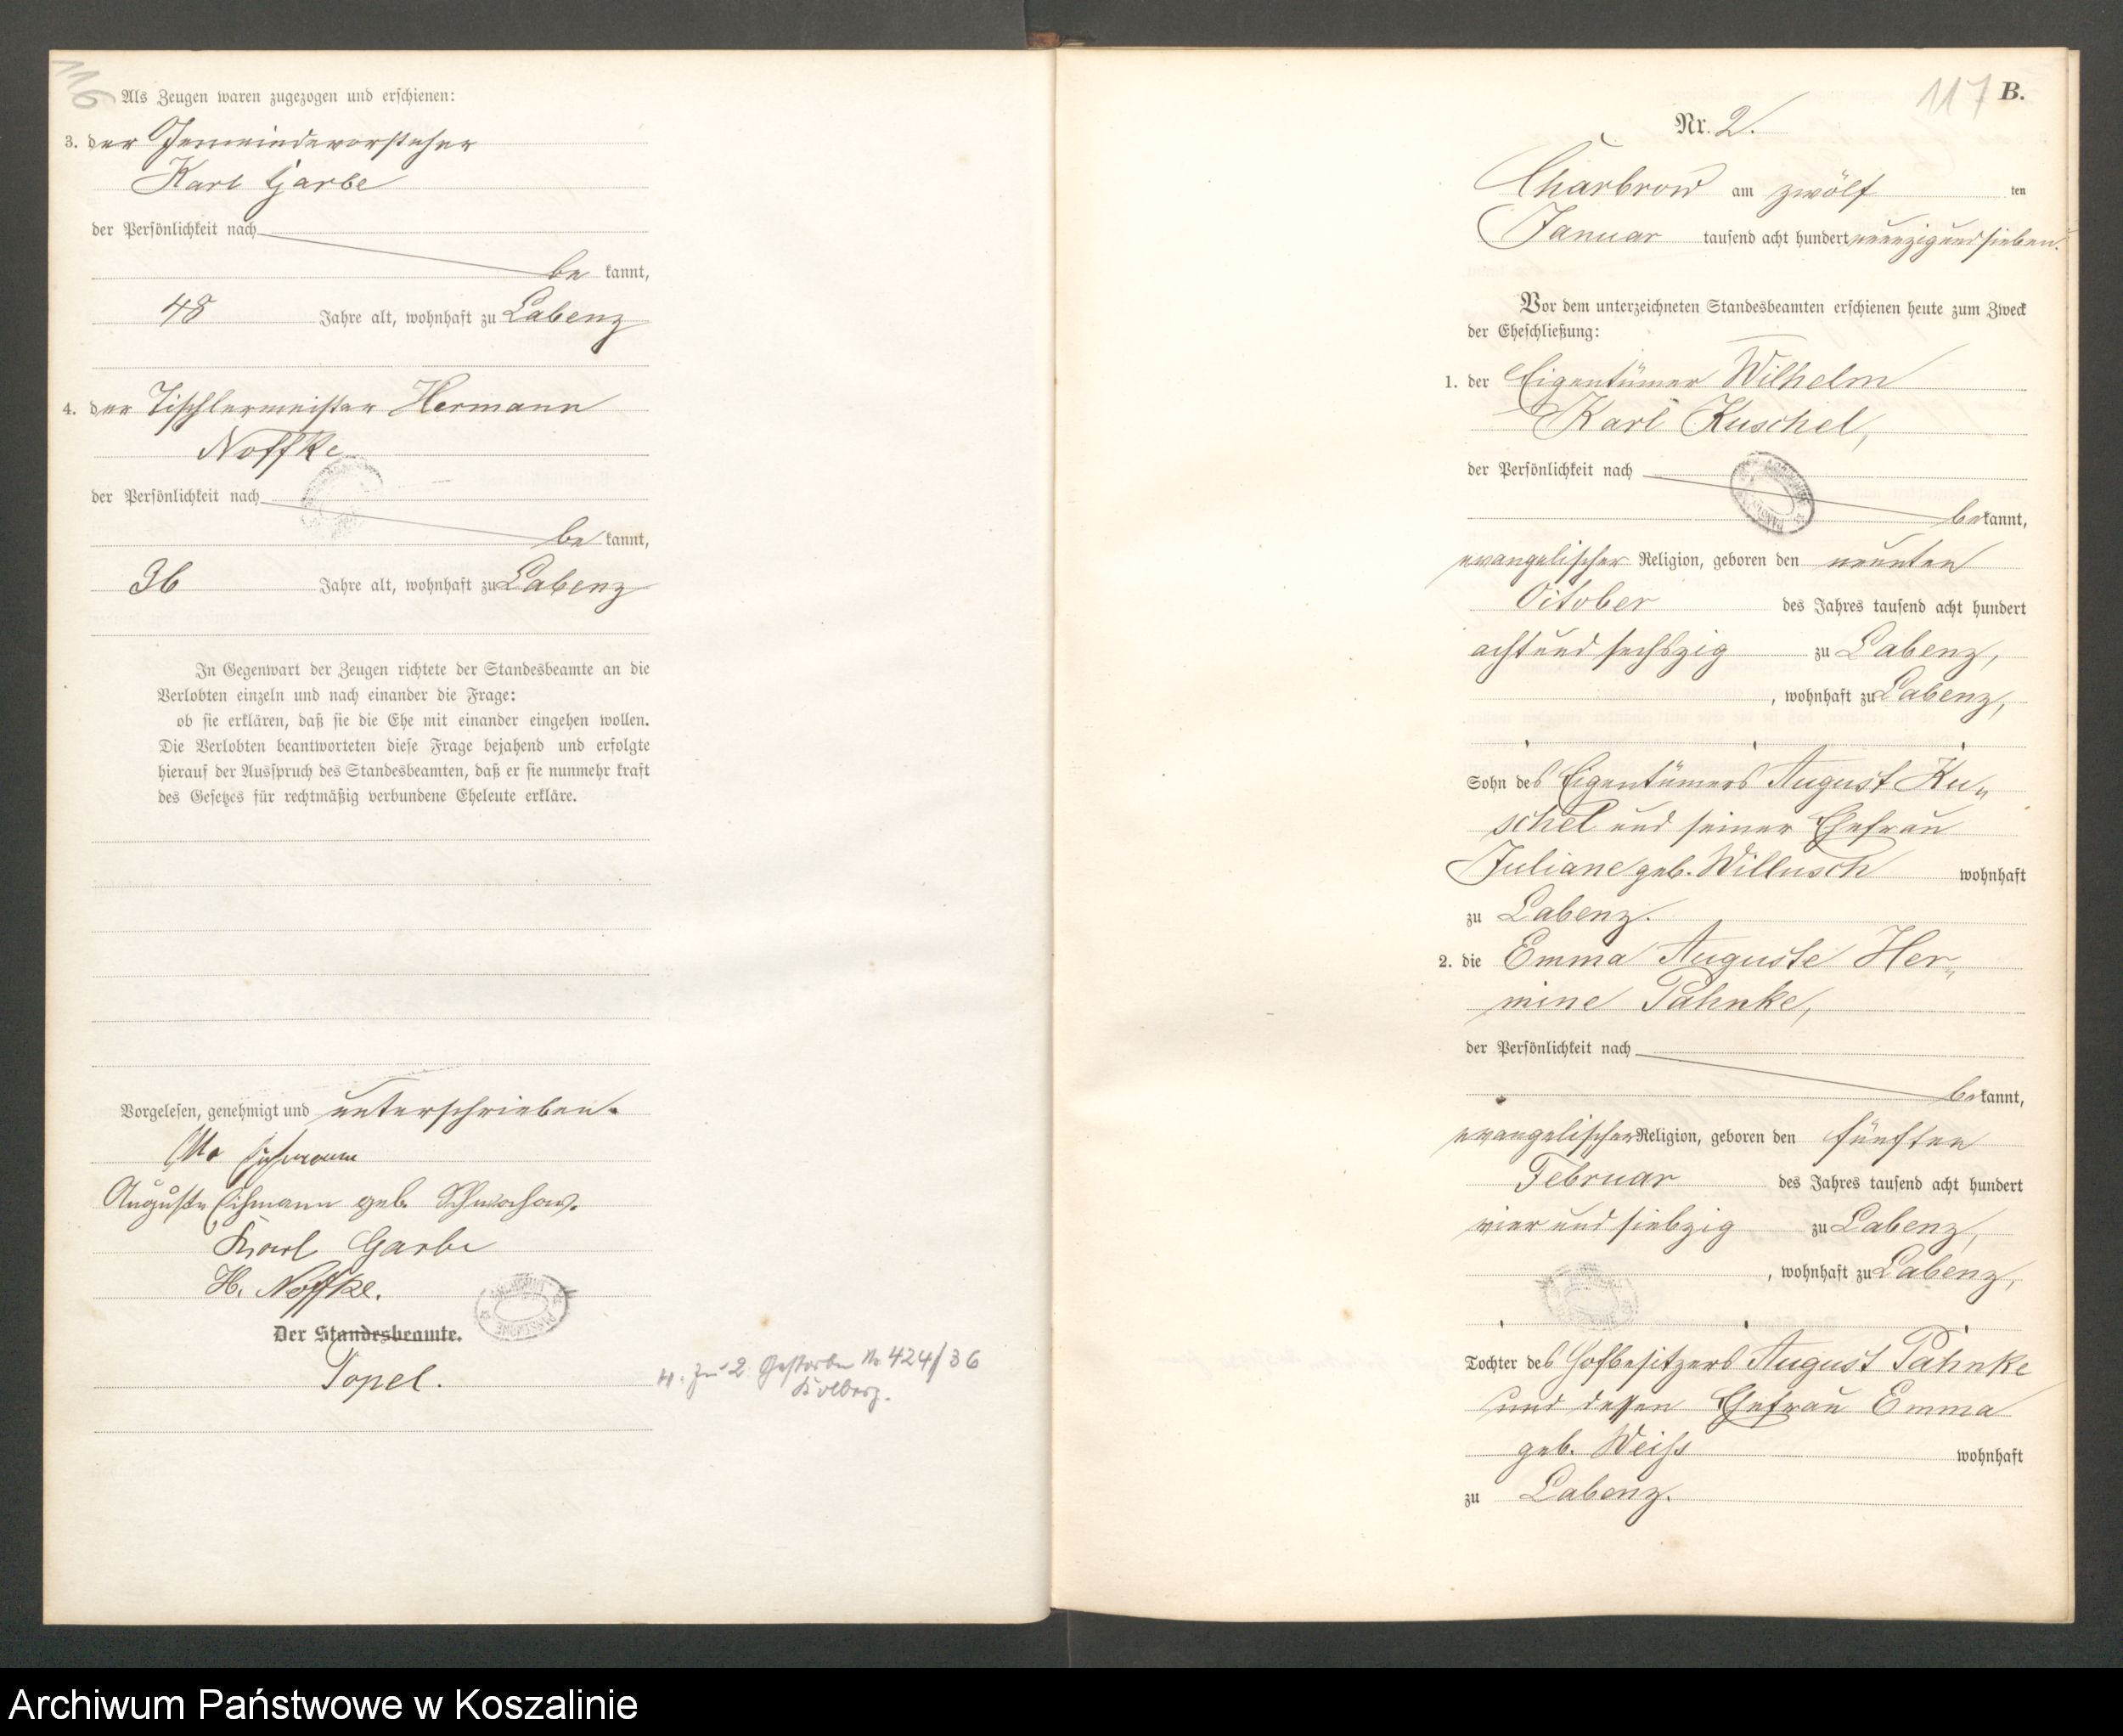 116
Als Zeugen waren zugezogen und erschienen:
3. der Gemeindevorsteher
Karl Garbe
der Persönlichkeit nach
be kannt,
48 Jahre alt, wohnhaft zu Labenz
4. der Tischlermeister Hermann
Noffke
der Persönlichkeit nach
be kannt,
36 Jahre alt, wohnhaft zu Labenz
In Gegenwart der Zeugen richtete der Standesbeamte an die
Verlobten einzeln und nach einander die Frage:
ob sie erklären, daß sie die Ehe mit einander eingehen wollen.
Die Verlobten beantworteten diese Frage bejahend und erfolgte
hierauf der Ausspruch des Standesbeamten, daß er sie nunmehr kraft
des Gesetzes für rechtmäßig verbundene Eheleute erkläre.
Vorgelesen, genehmigt und unterschrieben.
Auguste Eichmann geb. Schwochow.
Karl Garbe
H. Noffke.
Der Standesbeamte.
Topel.
H. zu 2 Gestorben Nr 424/36
Kolberg.
117 B.
Nr. 2.
Charbrow am zwölf ten
Januar tausend acht hundert neunzig und sieben.
Vor dem unterzeichneten Standesbeamten erschienen heute zum Zweck
der Eheschließung:
1. der Eigentümer Wilhelm
Karl Kuschel,
der Persönlichkeit nach
be kannt,
evangelischer Religion, geboren den neunten
October des Jahres tausend acht hundert
acht und sechszig zu Labenz,
, wohnhaft zu Labenz,
Sohn des Eigentümers August Ku„
schel und seiner Ehefrau
Juliane geb. Willusch wohnhaft
zu Labenz.
2. die Emma Auguste Her„
mine Pahnke,
der Persönlichkeit nach
be kannt,
evangelischer Religion, geboren den fünften
Februar des Jahres tausend acht hundert
vier und siebzig zu Labenz,
, wohnhaft zu Labenz,
Tochter des Hofbesitzers August Pahnke
und dessen Ehefrau Emma
geb. Weiss wohnhaft
zu Labenz.
Archiwum Państwowe w Koszalinie